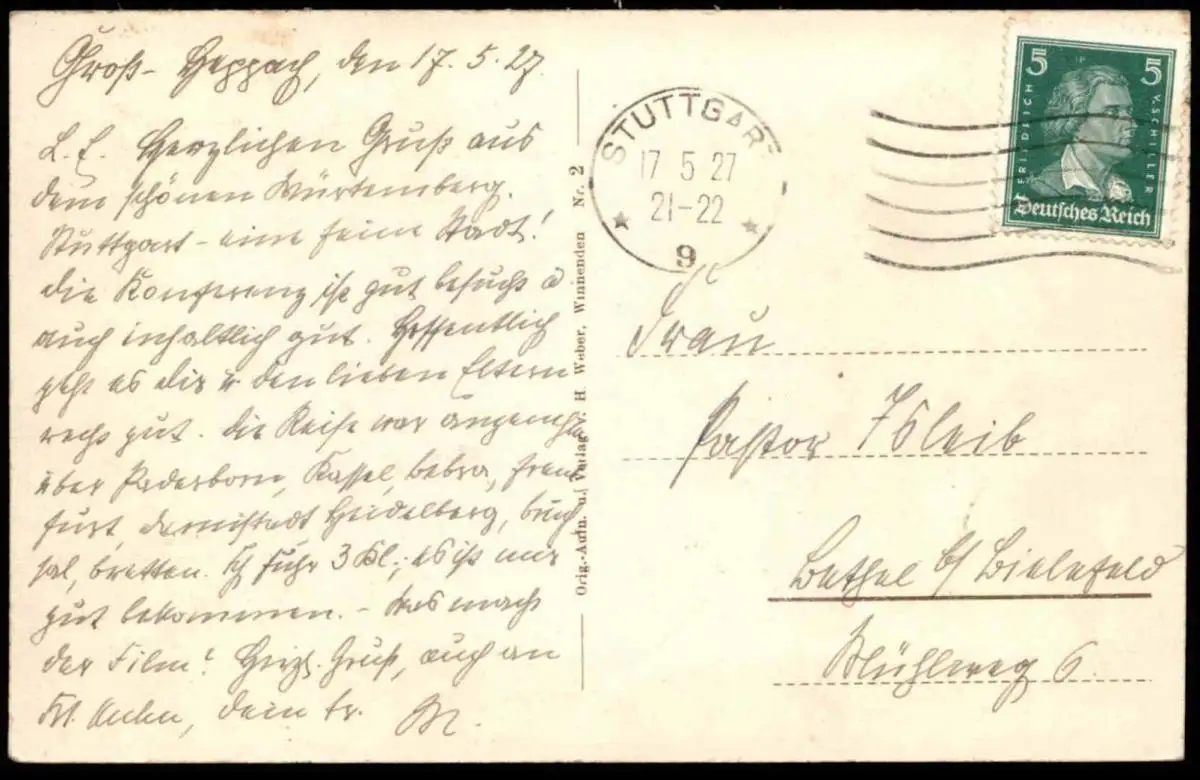 Groß-Heppach, den 17.5.27.
L. E. Herzlichen Gruß aus
dem schönen Würtemberg.
Stuttgart - eine feine Stadt!
die Konferenz ist gut besucht u
auch inhaltlich gut. Hoffentlich
geht es dir u den lieben Eltern
recht gut. die Reise war angenehm
über Paderborn, Kassel, bebra, Frank
furt, darmstadt Heidelberg, bruch
sal, bretten. Ich fuhr 3 Kl.; es ist mir
gut bekommen. - Was macht
der Film? Herzl. Gruß, auch an
Frl. dein tr. M.
Orig.-Aufn. u. Verlag v. H. Weber, Winnenden Nr. 2
STUTTGART
17 5 27
21-22
9
5 5
FRIEDRICH V. SCHILLER
Deutsches Reich
Frau
Pastor Isleib
Bethel b/ Bielefeld
Mühlweg 6.